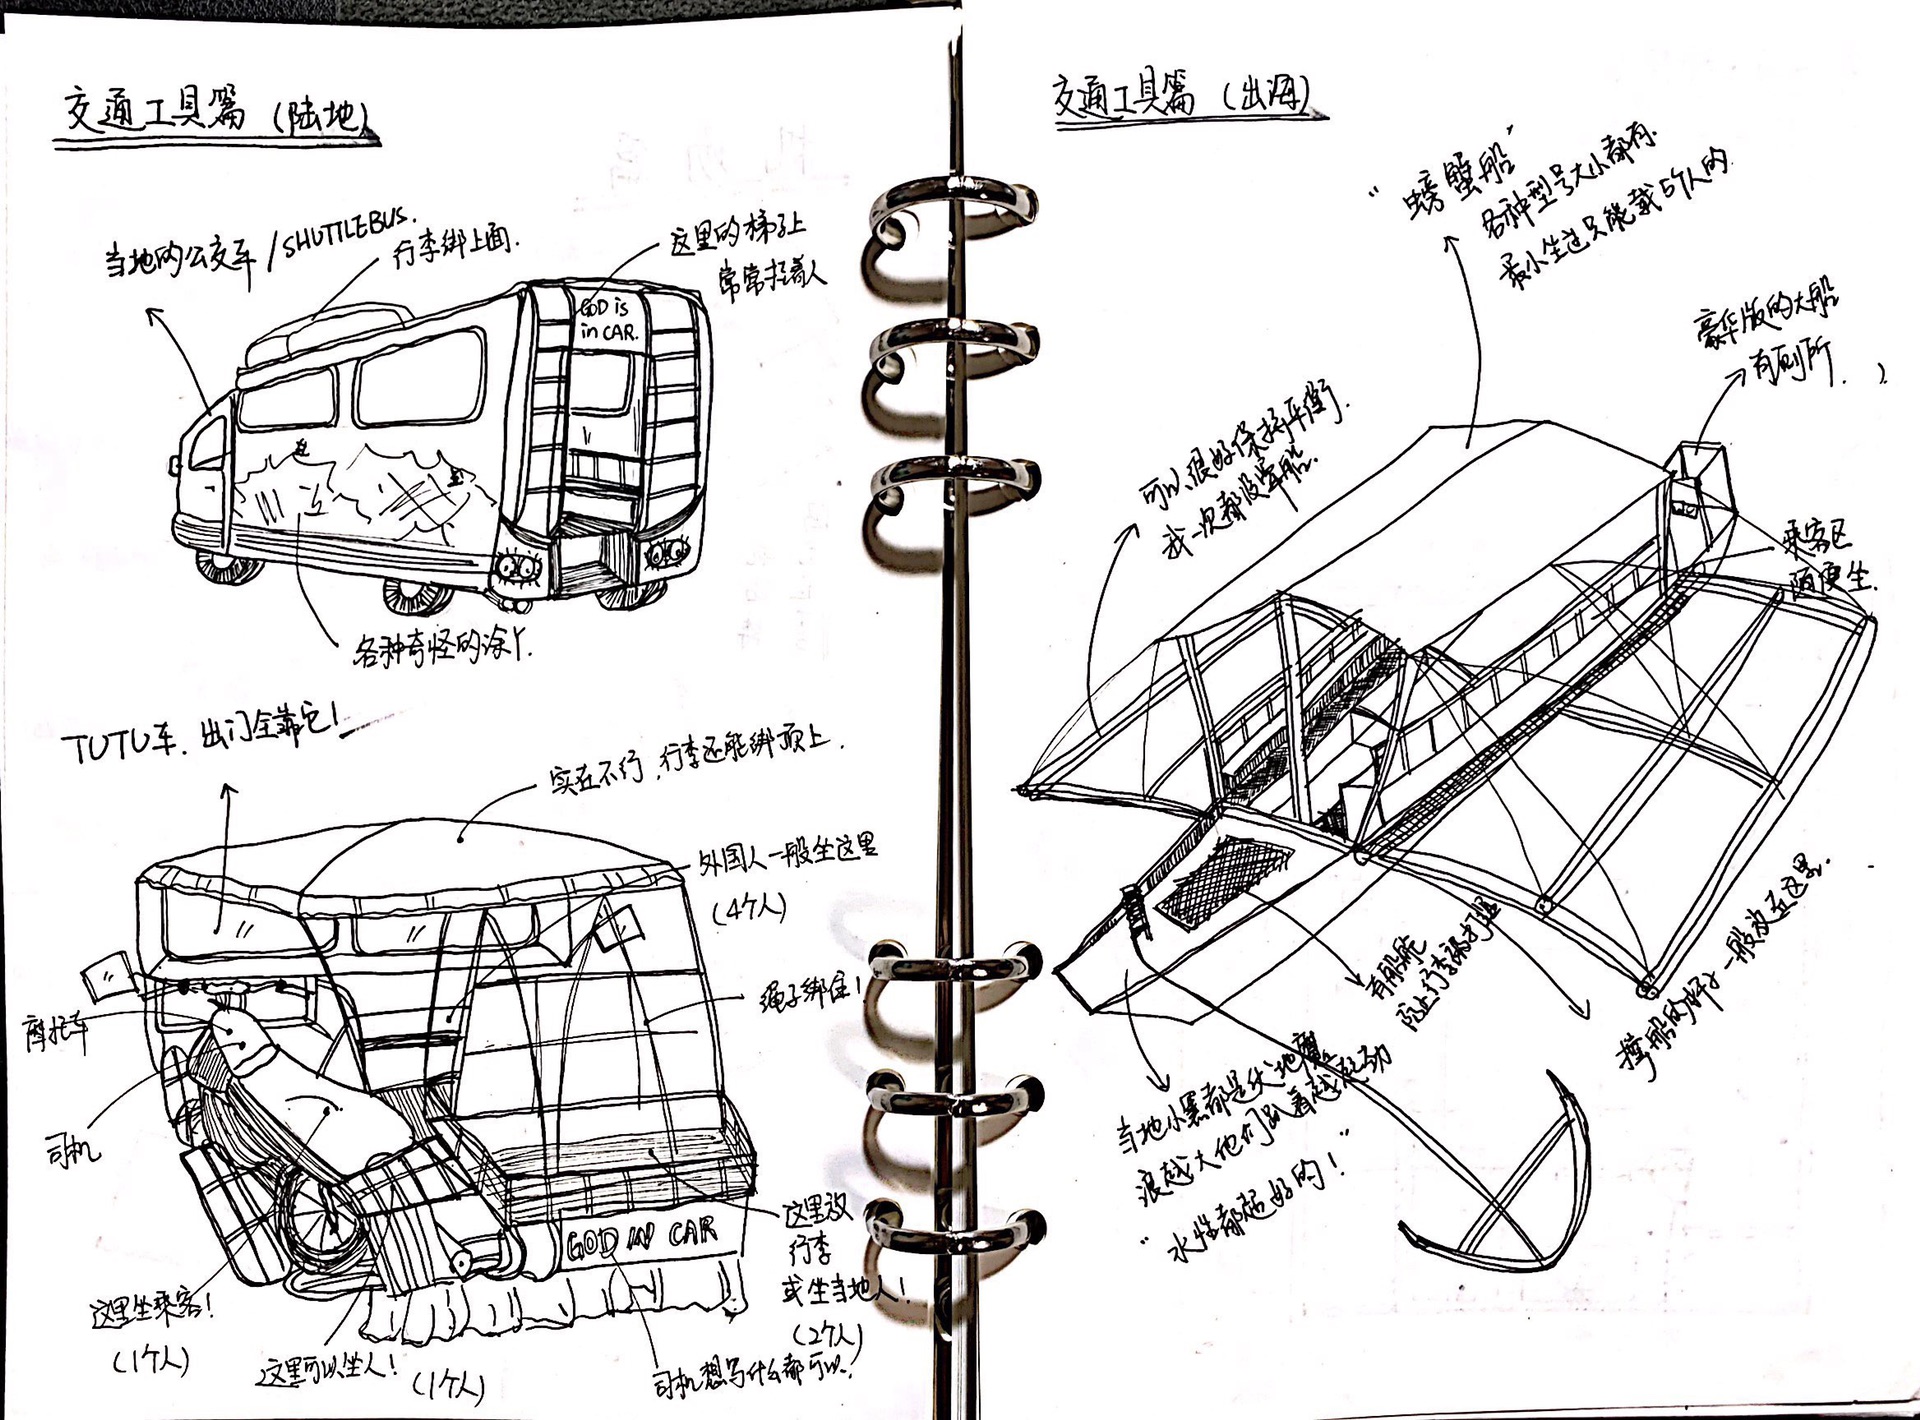 交通工具篇（陆地）
当地的公交车/SHUTTLEBUS.
行李绑上面.
这里的梯子上
常常挂着人
GOD is
in CAR.
各种奇怪的涂丫.
TUTU车. 出门全靠它!
实在不行,行李还能绑顶上.
外国人一般坐这里
(4个人)
绳子绑住!
摩托车
司机
GOD IN CAR
这里放
行李
或坐当地人!
(2个人)
这里坐乘客!
(1个人)
这里可以坐人!
(1个人)
司机想写什么都可以!
交通工具篇（出海）
"螃蟹船"
各种型号大小都有.
最小坐过只能载5个人的.
豪华版的大船
有厕所.
可以很好保持平衡.
我一次都没晕船.
乘客区
随便坐.
有船舱
防止行李被打湿
撑船的杆子一般放在这里.
当地小黑都是
浪越大他们
"水性都超好的!"